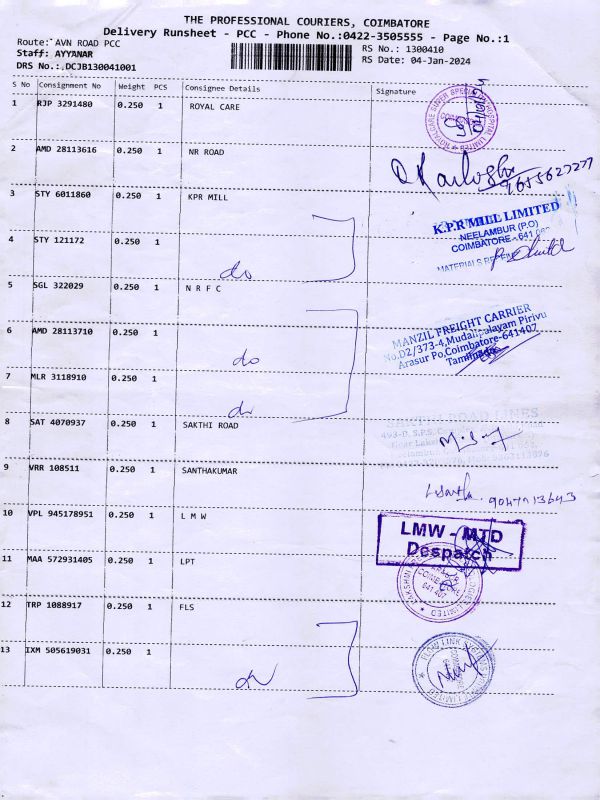 THE PROFESSIONAL COURIERS, COIMBATORE
Delivery Runsheet - PCC - Phone No.:0422-3505555 - Page No.:1
Route: AVN ROAD PCC
Staff: AYYANAR
DRS No.:.DCJB130041001
RS No.: 1300410
RS Date: 04-Jan-2024
S No Consignment No Weight PCS Consignee Details Signature
1 RJP 3291480 0.250 1 ROYAL CARE
2 AMD 28113616 0.250 1 NR ROAD
9655627227
3 STY 6011860 0.250 1 KPR MILL
K.P.R MILL LIMITED
NEELAMBUR (P.O)
COIMBATORE - 641
4 STY 121172 0.250 1 do
MATERIALS
5 SGL 322029 0.250 1 N R F C
MANZIL FREIGHT CARRIER
No.D2/373-4,Mudalipalayam Pirivu
Arasur Po.Coimbatore-641407
Tamilnadu
6 AMD 28113710 0.250 1 do
7 MLR 3118910 0.250 1 do
8 SAT 4070937 0.250 1 SAKTHI ROAD
ROAD LINES
9 VRR 108511 0.250 1 SANTHAKUMAR
9047913643
10 VPL 945178951 0.250 1 L M W
LMW - MTD
Despatch
11 MAA 572931405 0.250 1 LPT
COIMBATORE
641 407
12 TRP 1088917 0.250 1 FLS
13 IXM 505619031 0.250 1 do